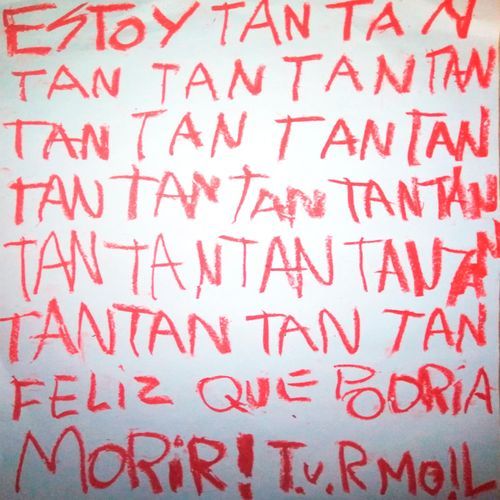 ESTOY TAN TAN
TAN TAN TAN TAN TAN
TAN TAN TAN TAN TAN
TAN TAN TAN TAN TAN
TAN TAN TAN TAN TAN
TAN TAN TAN TAN
FELiZ QUE PODRÍA
MORiR! T.V.RMOIL